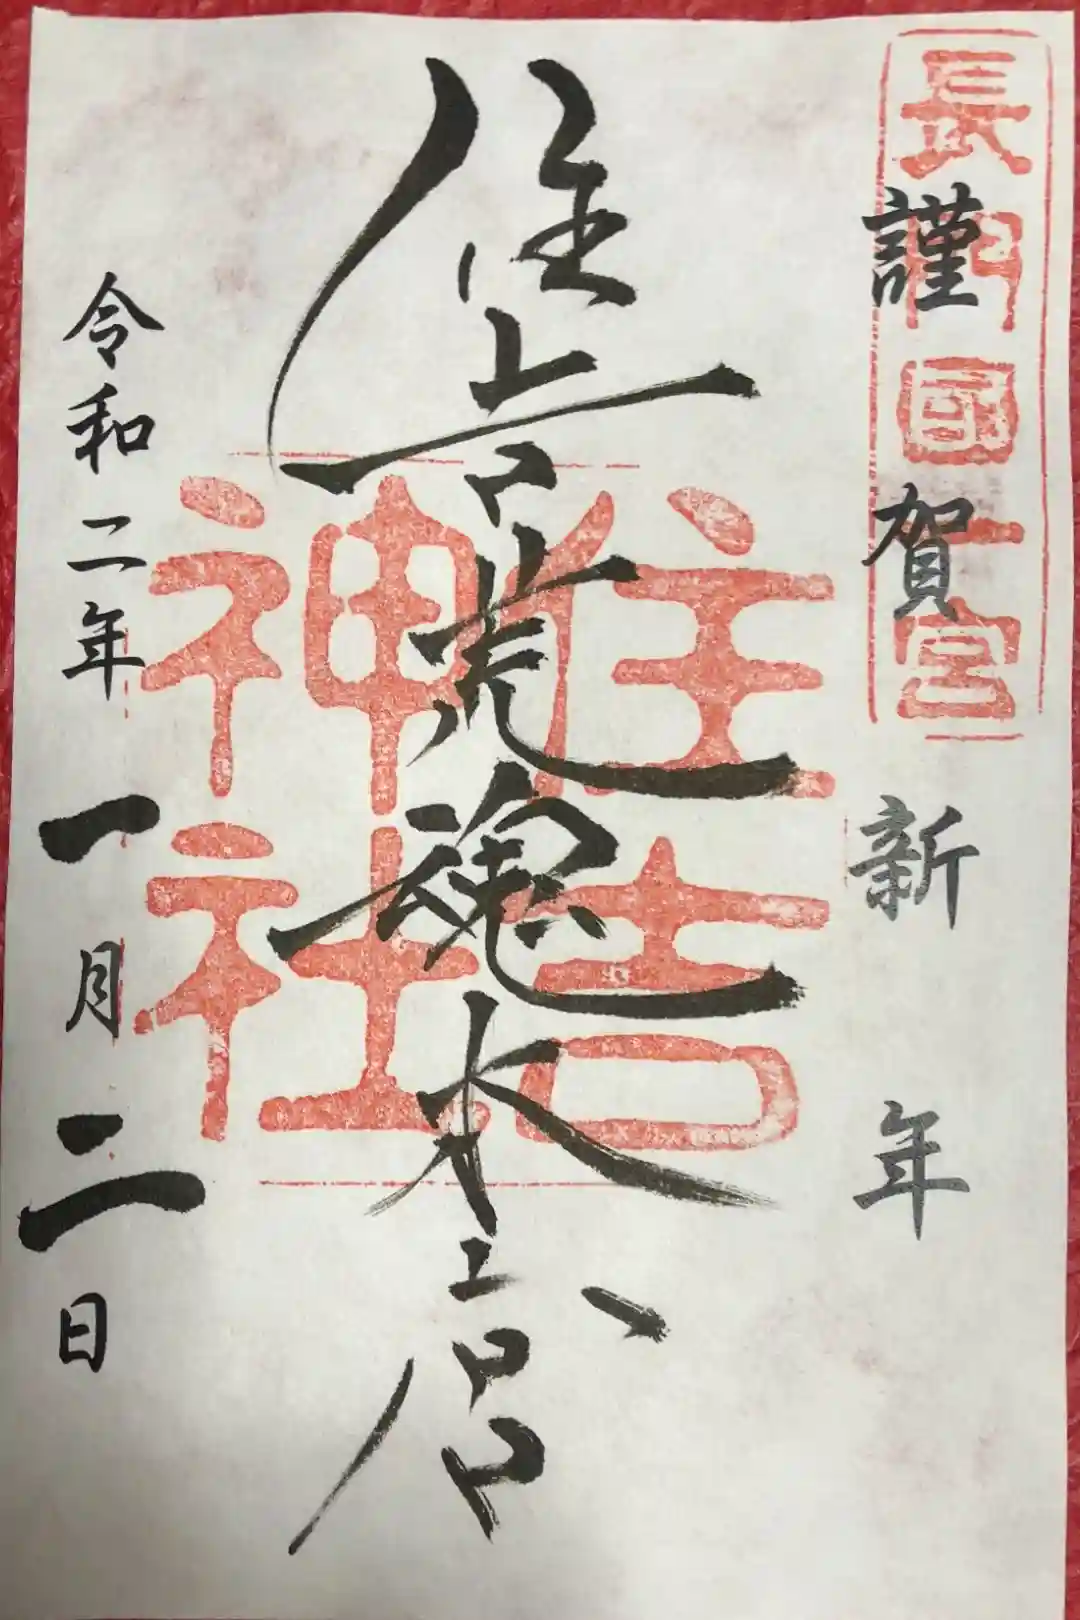 長門国一宮
謹賀新年
住吉荒魂本宮
住吉
神社
令和二年一月二日